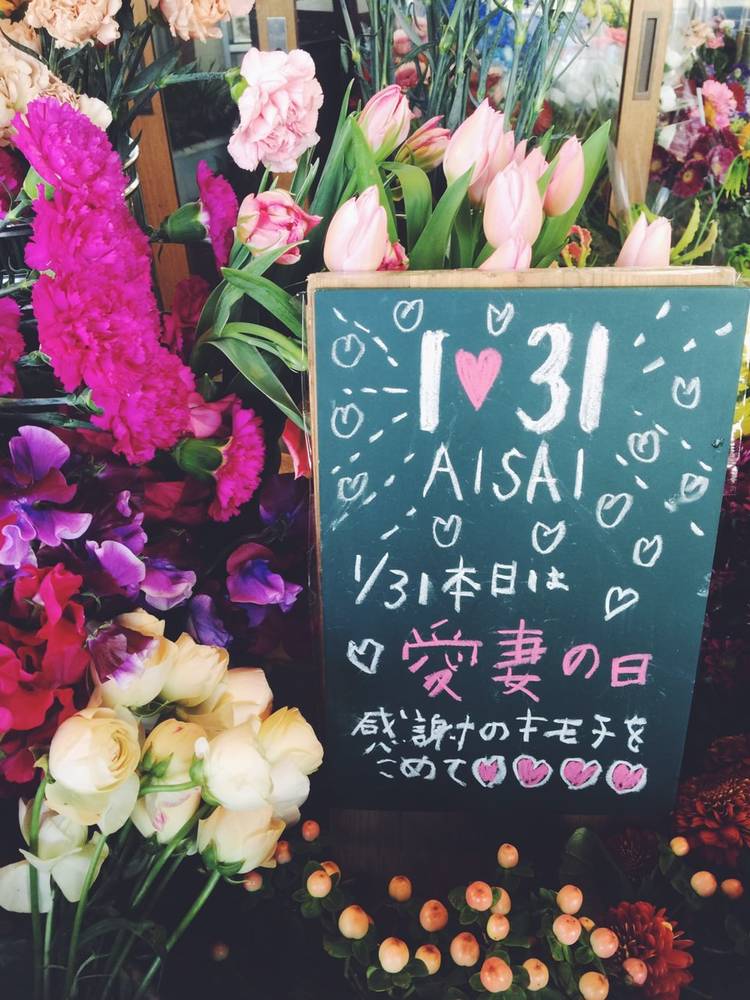 I♥31
AISAI
1/31本日は
♡愛妻の日
感謝のキモチを
こめて♥♥♥♥